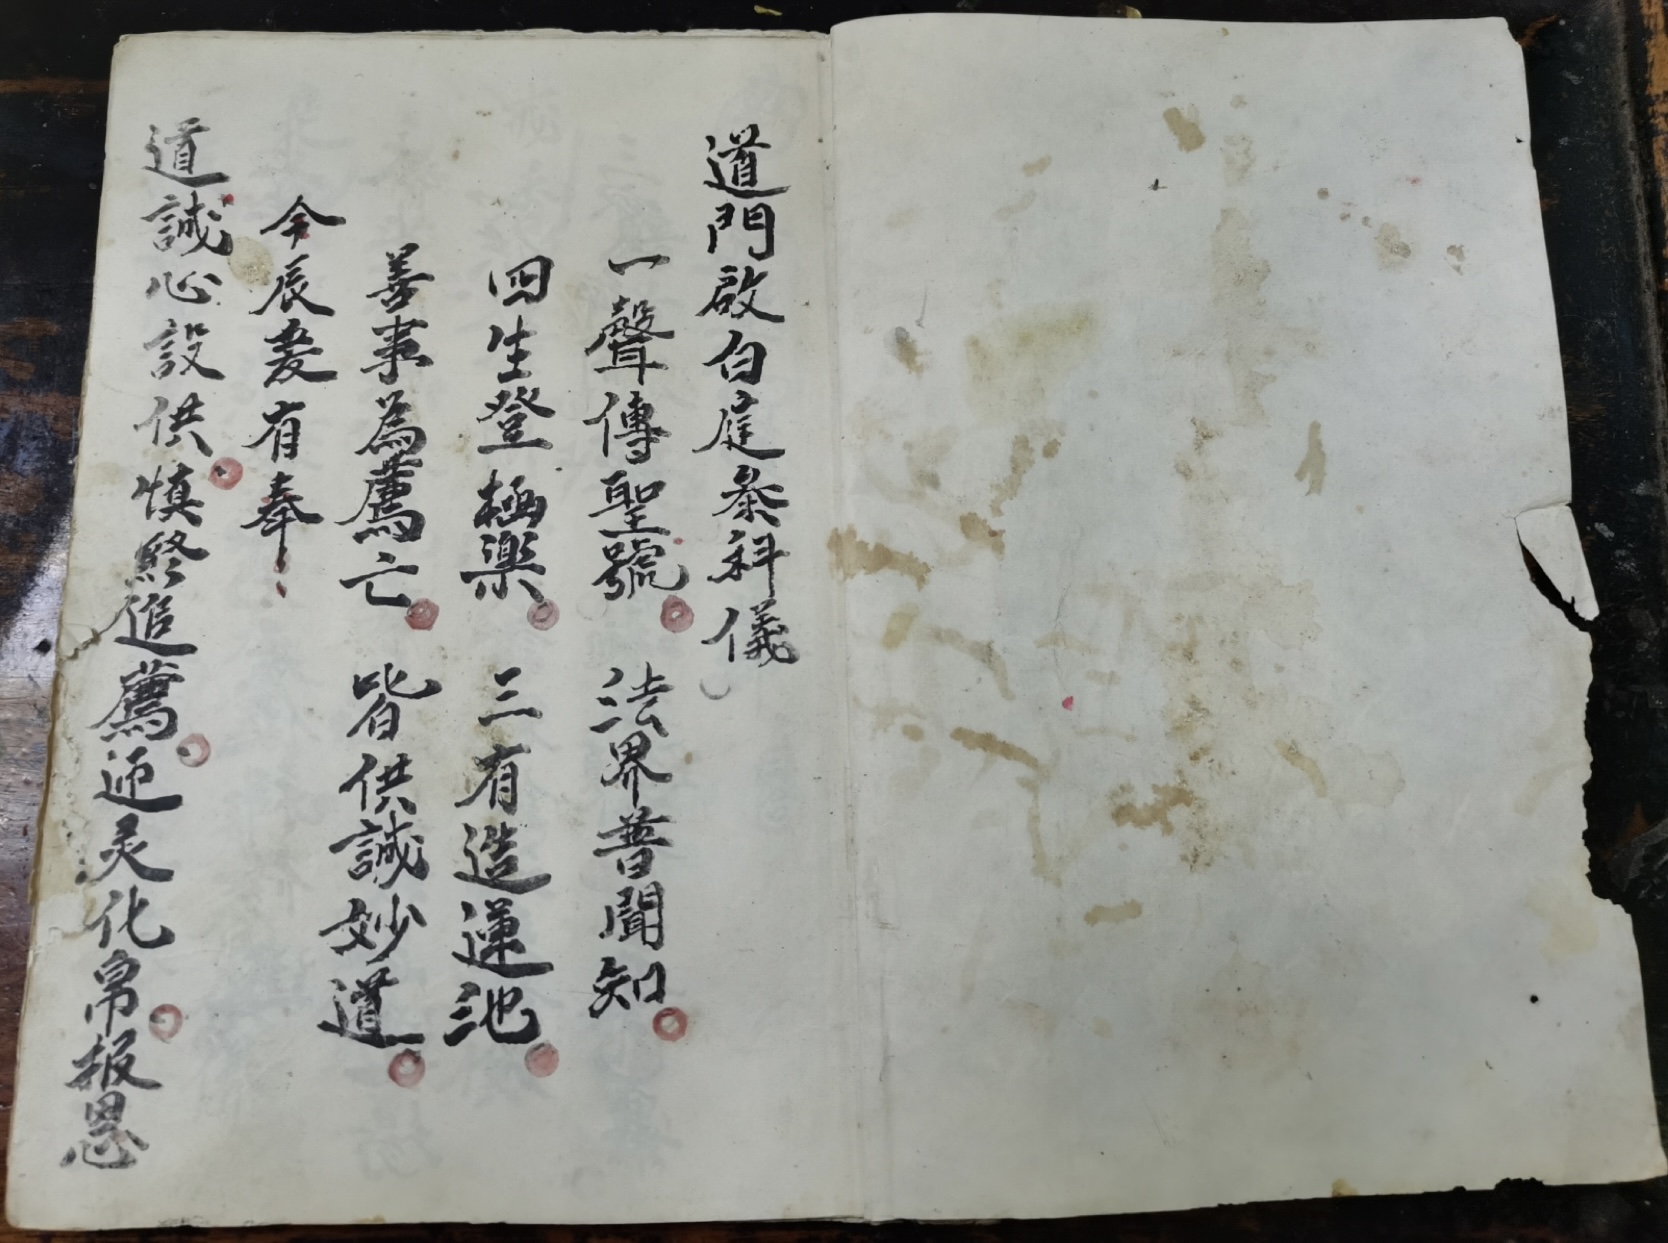 道門啟白庭參科儀
一聲傳聖號 法界普聞知
四生登極樂 三有造蓮池
善事為薦亡 皆供誠妙道
今辰爰有奉
道誠心設供慎終追薦迎灵化帛报恩